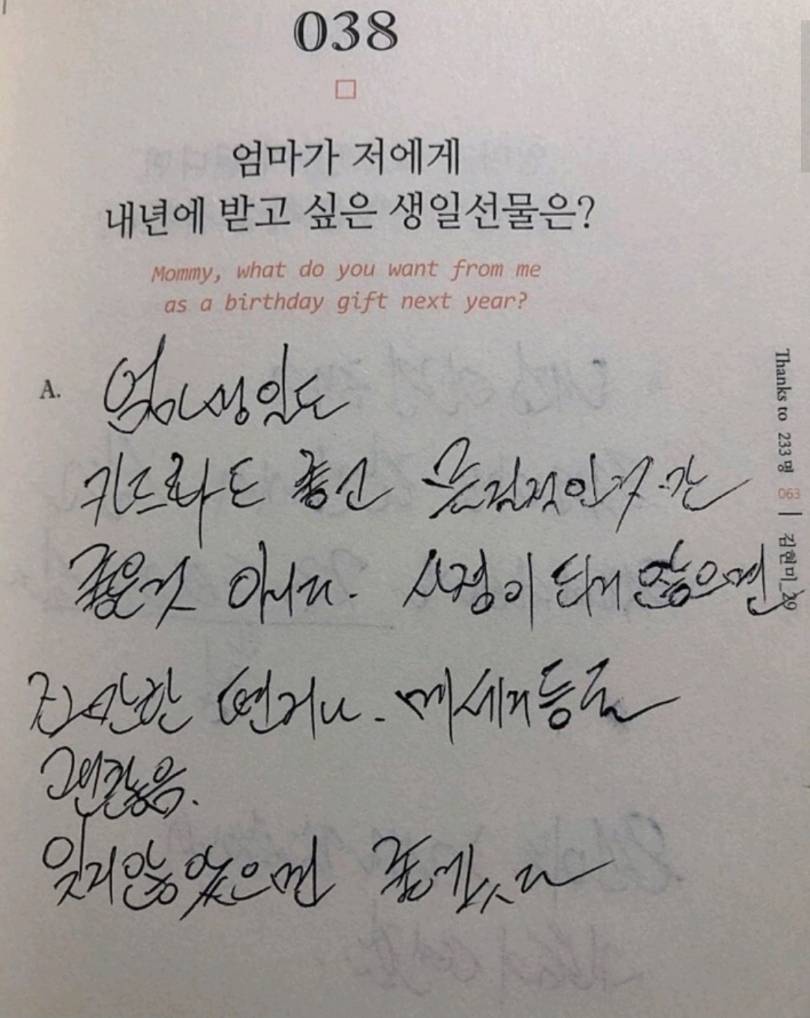 038
엄마가 저에게
내년에 받고 싶은 생일선물은?
Mommy, what do you want from me
as a birthday gift next year?
A. 생일도
카드라도 좋고 물질적인거 만
좋은것 아니다. 사정이 되지 않으면
간단한 편지나 메세지등도
괜찮음.
잊지않았으면 좋겠다
Thanks to 233명 063 | 김현미_29